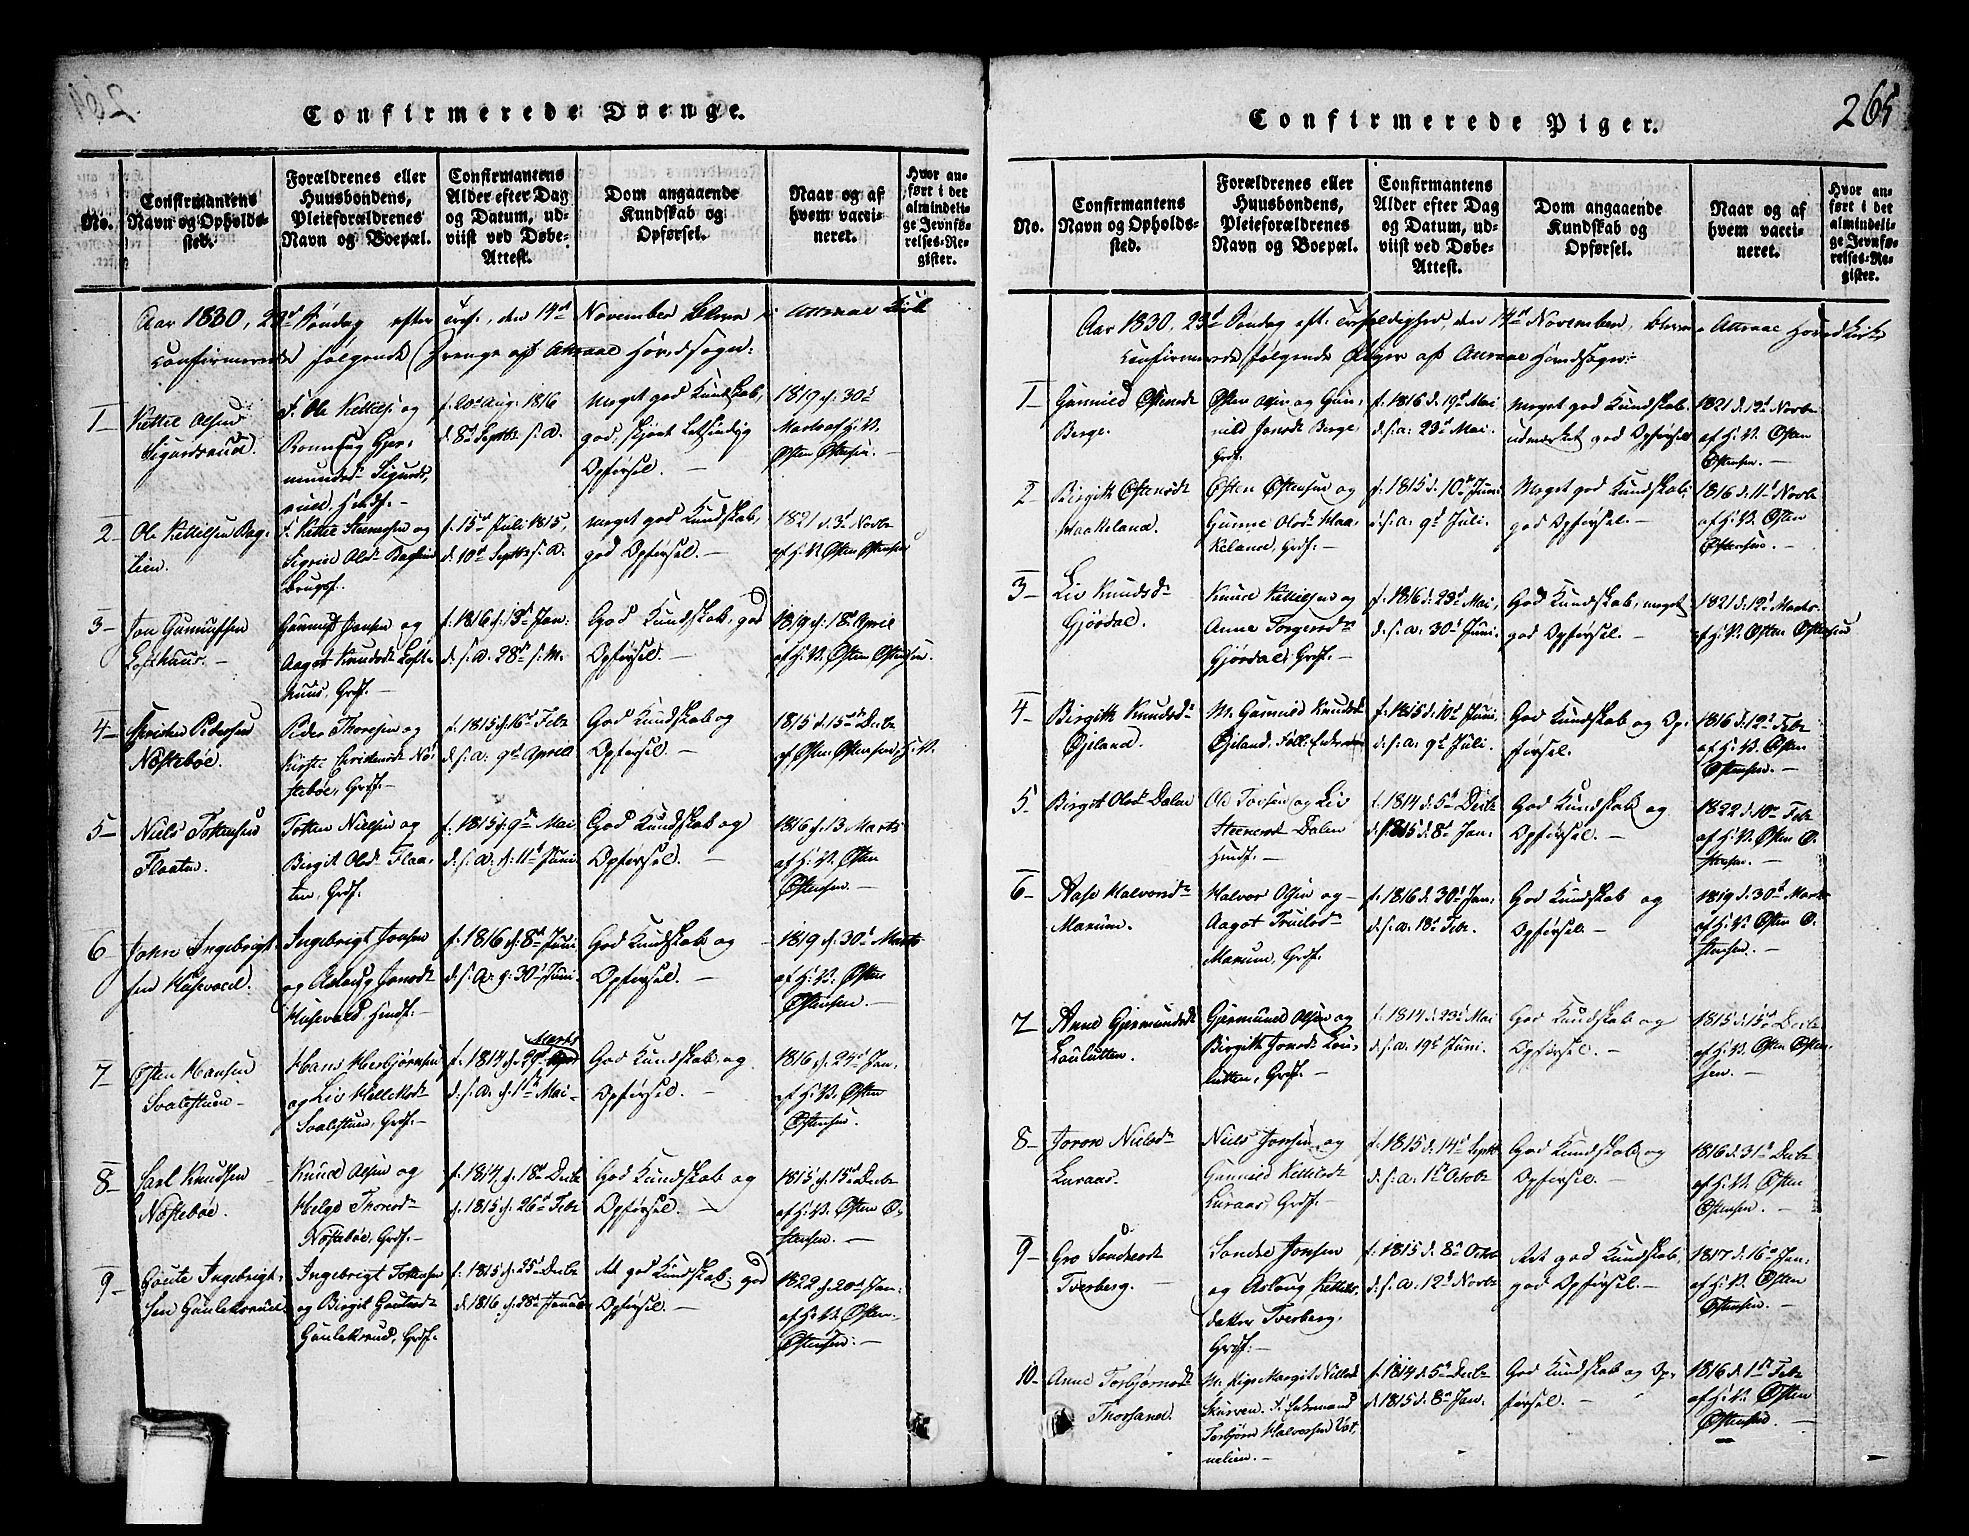 Confirmerede Drenge.
No.
Confirmantens
Navn og Opholds-
sted.
Forældrenes eller
Huusbondens,
Pleieforældrenes
Navn og Boepæl.
Confirmantens
Alder efter Dag
og Datum, ud-
viist ved Døbe-
Attest.
Dom angaaende
Kundskab og
Opførsel.
Naar og af
hvem vacci-
neret.
Hvor an-
ført i det
almindeli-
ge Jevnfø-
relses-Re-
gister.
Aar 1830, Søndag efter Tref., den 14de November blev i Attraae Kirke
confirmerede følgende Drenge af Attraae Hovedsogn:
1
Kettil Olsen
Sigurdsrud.
F. Ole Kettilsen og
Ronnaug Gjer-
mundsd. Sigurds-
rud, Huusf.
f. 20de Aug. 1816
d. 8de Septbr s. A.
Meget god Kundskab,
god, Letsindig
Opførsel.
1819 d. 30te
Marts af H. V.
Østen Østensen.
2
Ole Kettilsen Bag-
lien.
F. Kettil Steensen og
Sigrid Olsd. Baglien
Brugsf.
f. 15de Juli 1815,
d. 10de Septbr s. A.
meget god Kundskab,
god Opførsel.
1821 d. 3de Novbr
af H. V. Østen Østensen
3
Jon Gunnufsen
Lofthuus.
Gunnuf Jonsen og
Aagot Knudsd. Loft-
huus, Grdf.
f. 1816 d. 13de Jan.
d. s. A. 28de s. M.
God Kundskab, god
Opførsel.
1819 d. 18de April
af H. V. Østen Østensen.
4
Christen Pedersen
Nøstebøe.
Peder Thoresen og
Kirsti Christensd. Nø-
stebøe, Grdf.
f. 1815 d. 16de Febr
d. s. A. 9de April
God Kundskab og
Opførsel.
1815 d. 15de Decbr
af Østen Østensen, H. V.
5
Niels Tostensen
Flaaten.
Tosten Nielsen og
Birgit Olsd. Flaa-
ten, Grdf.
f. 1815 d. 9de Mai
d. s. A. d. 11te Juni
God Kundskab og
Opførsel.
1816 d. 13 Marts
af H. V. Østen
Østensen.
6
John Ingebrigt-
sen Husevold.
Ingebrigt Jonsen
og Aslaug Jonsd.
Husevold, Huusf.
f. 1816 d. 8de Juni
d. s. A. 30te Juni.
God Kundskab og
Opførsel.
1819 d. 30te Marts
af H. V. Østen
Østensen.
7
Østen Hansen
Svalestuen
Hans Herbjørnsen
og Liv Helleksd.
Svalestuen, Grdf.
f. 1814 d. 29de Marts
d. s. A. d. 1ste Mai
God Kundskab og
Opførsel.
1816 d. 24de Jan.
af H. V. Østen
Østensen.
8
Tarl Knudsen
Nøstebøe.
Knud Olsen og
Helge Thoresd.
Nøstebøe, Grdf.
f. 1814 d. 18de Decbr
d. 1815 d. 26de Febr
God Kundskab og
Opførsel.
1815 d. 15de Decbr
af H. V. Østen Ø-
stensen.
9
Goute Ingebrigt-
sen Gunleksrud.
Ingebrigt Tostensen
og Birgit Goutesd.
Gunleksrud, Grdf.
f. 1815 d. 25de Decbr
d. 1816 d. 28de Januar
Ret god Kundskab, god
Opførsel.
1822 d. 20de Jan.
af H. V. Østen
Østensen.
Confirmerede Piger.
265
No.
Confirmantens
Navn og Opholds-
sted.
Forældrenes eller
Huusbondens,
Pleieforældrenes
Navn og Boepæl.
Confirmantens
Alder efter Dag
og Datum, ud-
viist ved Døbe-
Attest.
Dom angaaende
Kundskab og
Opførsel.
Naar og af
hvem vacci-
neret.
Hvor an-
ført i det
almindeli-
ge Jevnfø-
relses-Re-
gister.
Aar 1830, 23de Søndag eft. Trefoldighed, den 14de November, bleve i Attraae Hovedkirke
confirmerede følgende Piger af Attraae Hovedsogn:
1
Gunnild Østensd.
Berge.
Østen Olsen og Gun-
nild Jonsd. Berge,
Grdf.
f. 1816 d. 19de Mai
d. s. a. 23de Mai.
Meget god Kundskab,
udmærket god Opførsel
1821 d. 12te Novbr
af H. V. Østen
Østensen.
2
Birgith Østensd.
Maakeland.
Østen Østensen og
Gunne Olsd. Maa-
keland, Grdf.
f. 1815 d. 10de Juni
d. s. a. 9de Juli.
Meget god Kundskab,
god Opførsel.
1816 d. 11te Novbr
af H. V. Østen
Østensen.
3
Liv Knudsd.
Gjøsdal.
Knud Kettilsen og
Anne Torgersd.
Gjøsdal, Grdf.
f. 1816 d. 23de Mai,
d. s. a. 30te Juni.
God Kundskab, meget
god Opførsel.
1821 d. 12te Marts
af H. V. Østen Østensen
4
Birgith Knudsd.
Øjeland.
M. Gunnild Knudsd.
Øjeland.
f. 1815 d. 10de Juni
d. s. a. 9de Juli.
God Kundskab og Op-
førsel.
1816 d. 12te Febr
af H. V. Østen
Østensen.
5
Birgit Olsd. Dalen
Ole Torsen og Liv
Steensd. Dalen
Huusf.
f. 1814 d. 5te Decbr
d. 1815 d. 8de Jan.
God Kundskab og
Opførsel.
1822 d. 10de Febr
af H. V. Østen Ø-
stensen.
6
Aase Halvorsd.
Marum.
Halvor Olsen og
Aagot Trulsd.
Marum, Grdf.
f. 1816 d. 30te Jan.
d. s. a. 18de Febr.
God Kundskab og
Opførsel.
1819 d. 30te Marts
af H. V. Østen Ø-
stensen.
7
Anne Gjermundsd.
Loulutten.
Gjermund Olsen og
Birgith Jonsd. Lou-
lutten, Grdf.
f. 1814 d. 23de Mai
d. s. a. 19de Juni.
God Kundskab og
Opførsel.
1815 d. 15de Decbr
af H. V. Østen Østen-
sen.
8
Joron Nielsd.
Luraas.
Niels Jonsen og
Gunnild Kettilsd.
Luraas, Grdf.
f. 1815 d. 14de Septbr
d. s. a. 1ste Octobr
God Kundskab og
Opførsel.
1816 d. 31te Decbr
af H. V. Østen
Østensen.
9
Gro Sondresd.
Tverberg.
Sondre Jonsen
og Aslaug Kettils-
datter Tverberg,
Grdf.
f. 1815 d. 8de Octbr
d. s. a. 12te Novbr
Ret god Kundskab,
god Opførsel.
1817 d. 16de Jan.
af H. V. Østen
Østensen.
10
Anne Torbjørnsd.
Thorsand.
M. Pige Margit
Skurven. F.
Torbjørn Halvorsen
f. 1814 d. 5te Decbr
d. 1815 d. 8de Jan.
God Kundskab og Op-
førsel.
1816 d. 1ste Febr
af H. V. Østen
Østensen.